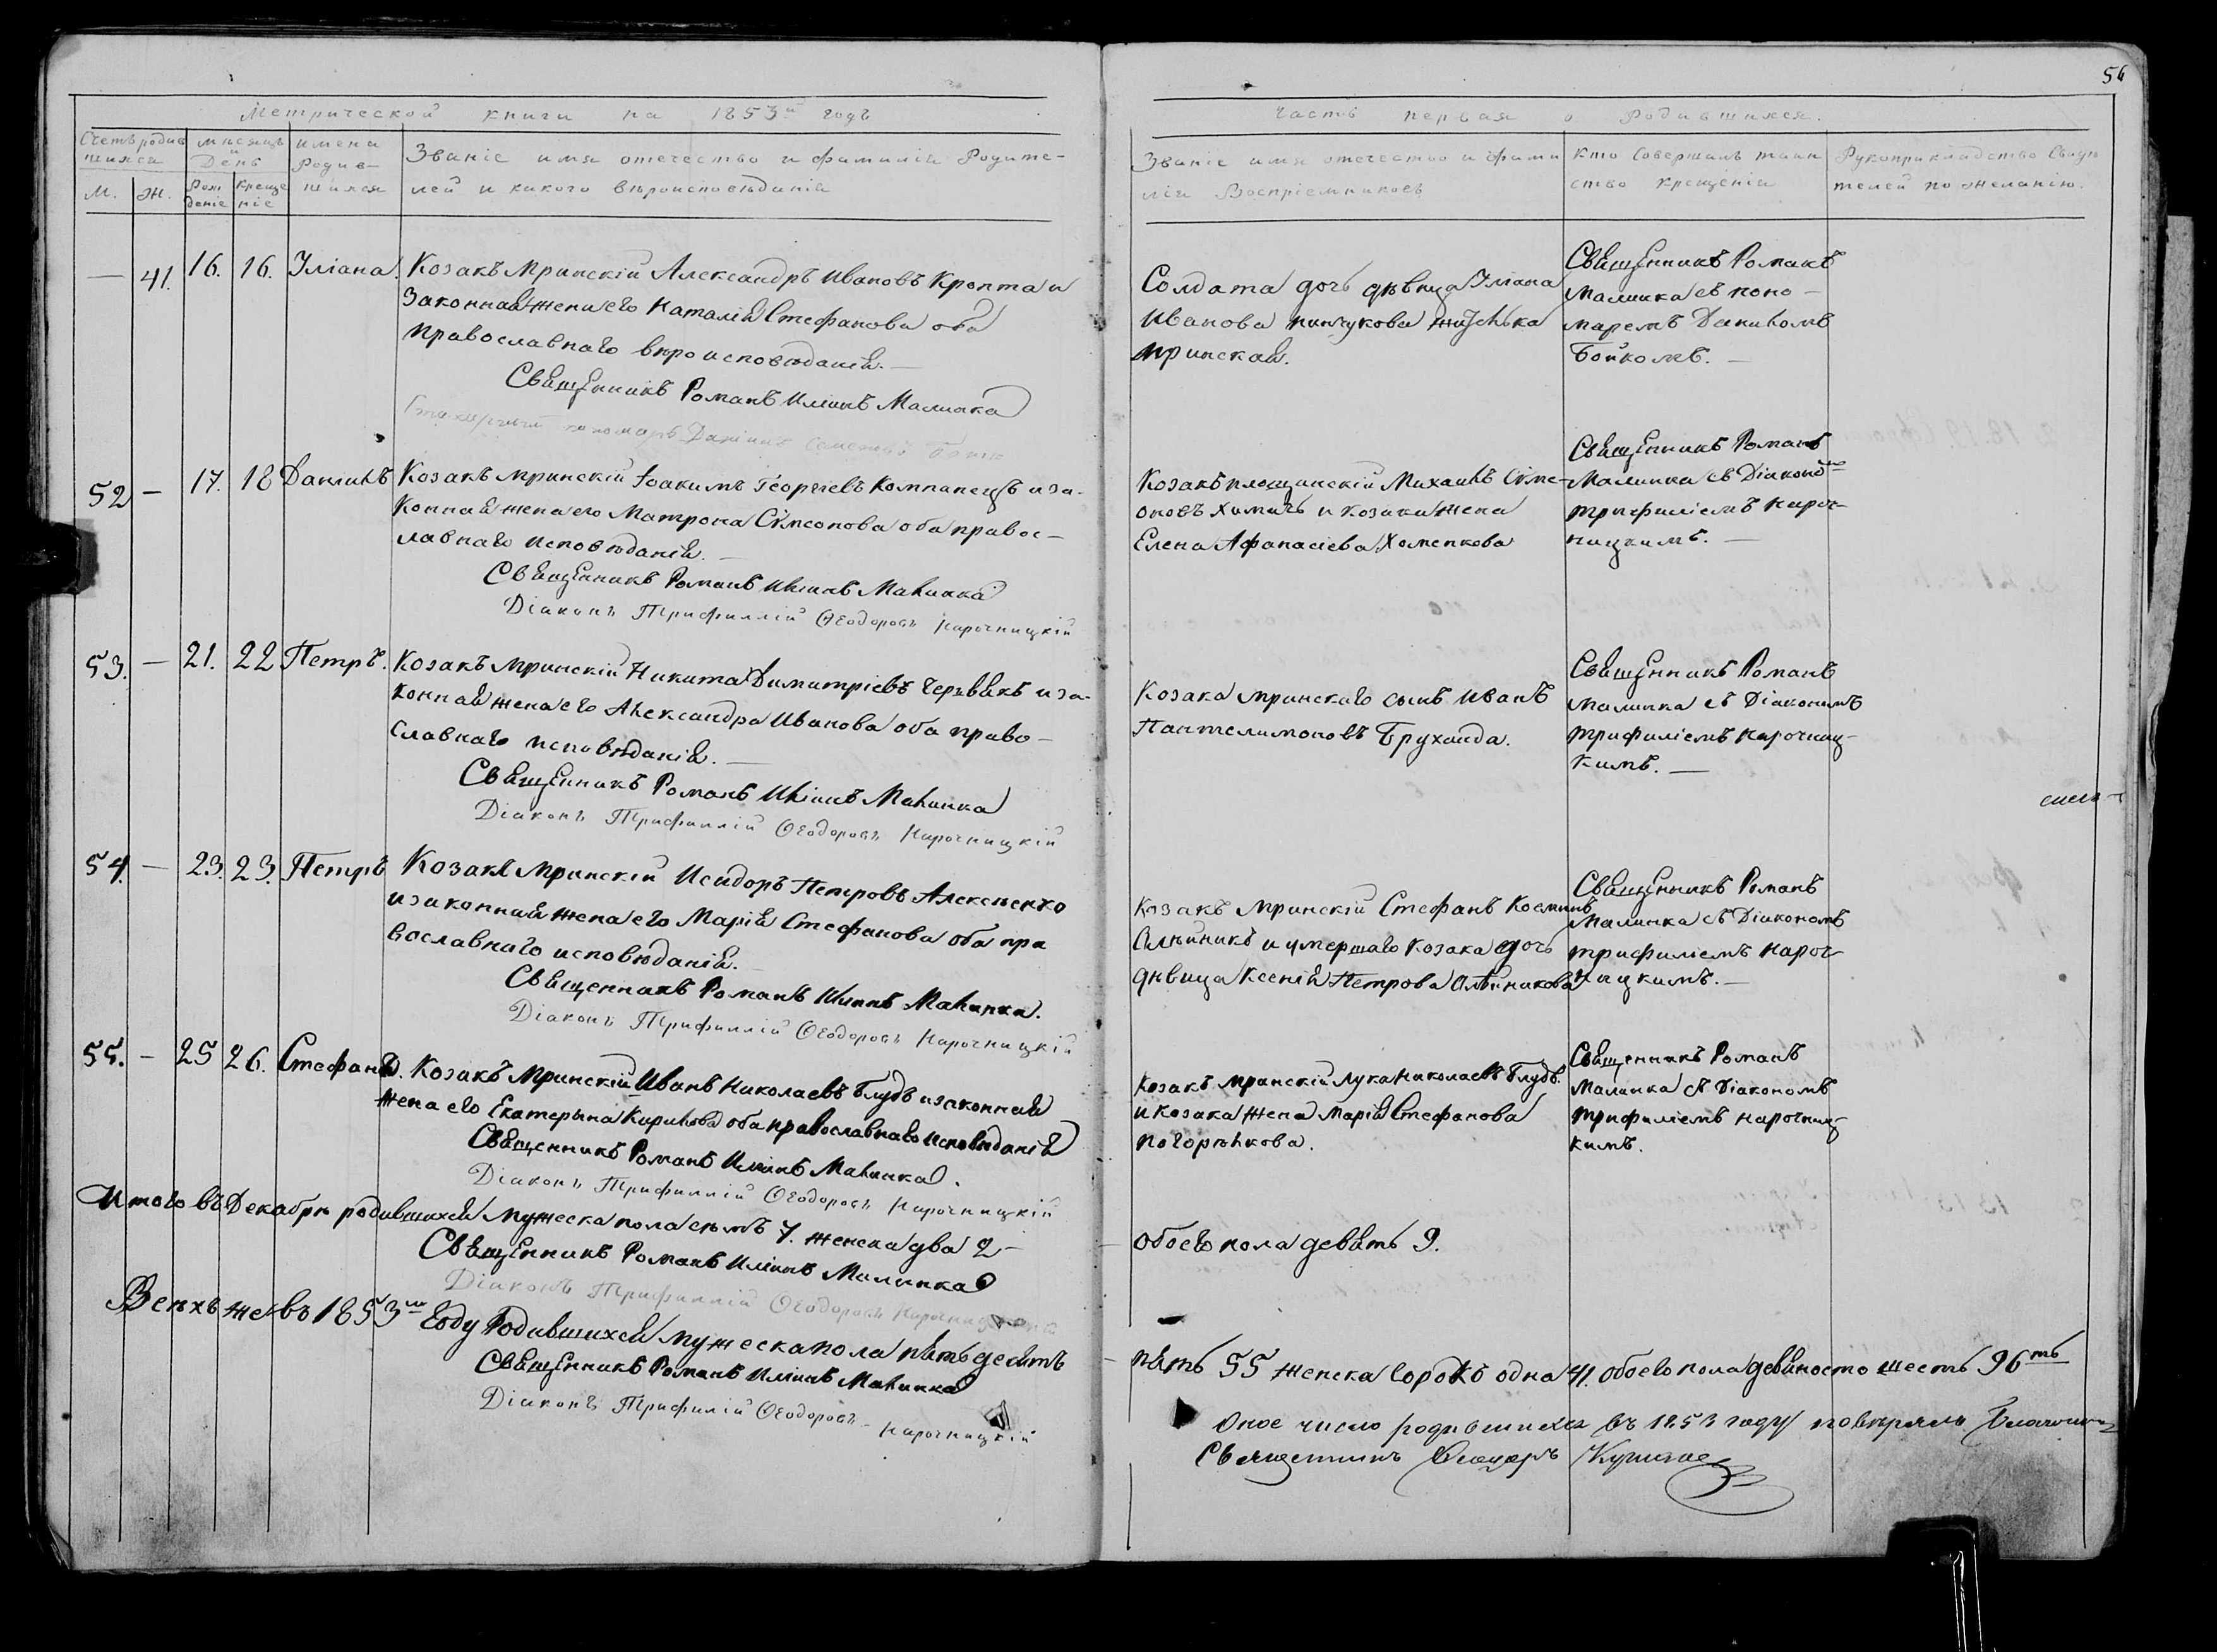 56
Метрической книги на 1853й годъ
Счетъ родив
шихся
М. Ж.
мѣсяцъ
и
День
Рож
деніе
креще
ніе
имена
Родив-
шихся
Званіе имя отечество и фамилія Родите-
лей и какого вѣроисповѣданія
— 41. 16. 16. Іуліана. Козакъ Мринскій Александръ Ивановъ Кропта и
Законная жена его Наталія Стефанова оба
православнаго вѣроисповѣданія. —
Священникъ Романъ Иліинъ Малинка
пономарь Даніилъ
52 — 17. 18 Даніилъ Козакъ мринскій Іоакимъ Георгіевъ Компанецъ и за-
конная жена его Матрона Сѵмеонова оба правос-
лавнаго исповѣданія. —
Священникъ Романъ Иліинъ Малинка
Діаконъ Трифиллій Ѳеодоровъ Нарочницкій
53. — 21. 22 Петръ. Козакъ Мринскій Никита Димитріевъ Червякъ и за-
конная жена его Александра Иванова оба право-
славнаго исповѣданія. —
Священникъ Романъ Иліинъ Малинка
Діаконъ Трифиллій Ѳеодоровъ Нарочницкій
54. — 23. 23. Петръ Козакъ Мринскій Исидоръ Петровъ Алексѣенко
и законная жена его Марія Стефанова оба пра
вославнаго исповѣданія.
Священникъ Романъ Иліинъ Малинка.
Діаконъ Трифиллій Ѳеодоровъ Нарочницкій
55. — 25 26. Стефанъ. Козакъ Мринскій Иванъ Николаевъ Блудъ и законная
жена его Екатерына Кирилова оба православнаго исповѣданія
Священникъ Романъ Иліинъ Малинка.
Діаконъ Трифиллій Ѳеодоровъ Нарочницкій
Итого въ Декабрѣ родившихся мужеска пола сѣмъ 7. женска два 2 —
Священникъ Романъ Иліинъ Малинка
Діаконъ Трифиллій Ѳеодоровъ Нарочницкій
Всѣхъ же въ 1853м Году Родившихся мужеска пола пятьдесятъ
Священникъ Романъ Иліинъ Малинка
Діаконъ Трифилій Ѳеодоровъ - Нарочницкій
Часть первая о Родившихся.
Званіе имя отечество и фами
лія Воспріемниковъ
Кто Совершалъ таин
ство крещенія
Рукоприкладство Свидѣ
телей по желанію.
Солдата дочь дѣвица Іуліана
Иванова пинчукова
мринская.
Священникъ Романъ
Малинка съ поно-
маремъ Даниломъ
Бойкомъ. —
Козакъ площанскій Михаилъ Сѵме-
оновъ Химичъ и козака жена
Елена Афанасіева Хоменкова
Священникъ Романъ
Малинка съ Діакономъ
трифиліемъ Нароч-
ницкимъ. —
Козака мринскаго сынъ Иванъ
Пантелимоновъ Бруханда.
Священникъ Романъ
Малинка съ Діакономъ
трифиліемъ Нарочниц-
кимъ. —
Козакъ мринскій Стефанъ Косминъ
Олѣйникъ и умершаго козака дочь
дѣвица Ксенія Петрова Олѣйникова
Священникъ Романъ
Малинка съ Діакономъ
трифиліемъ Нароч-
ницкимъ. —
Козакъ мринскій Лука Николаевъ Блудъ.
и козака жена Марія Стефанова
погорѣлкова.
Священникъ Романъ
Малинка съ Діакономъ
трифиліемъ Нарочниц-
кимъ.
обоего пола девять 9.
пять 55 женска сорокъ одна 41. обоего пола девяносто шесть 96ть
Оное число родившихся въ 1853 году повѣрялъ
Священникъ